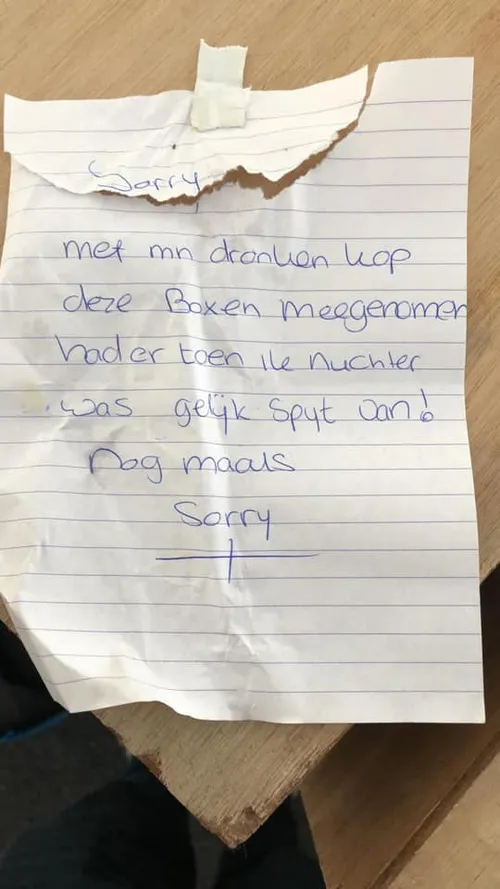 Sorry
met mn dronken kop
deze Boxen meegenomen
had er toen ik nuchter
was gelijk spyt van!
Nog maals
Sorry